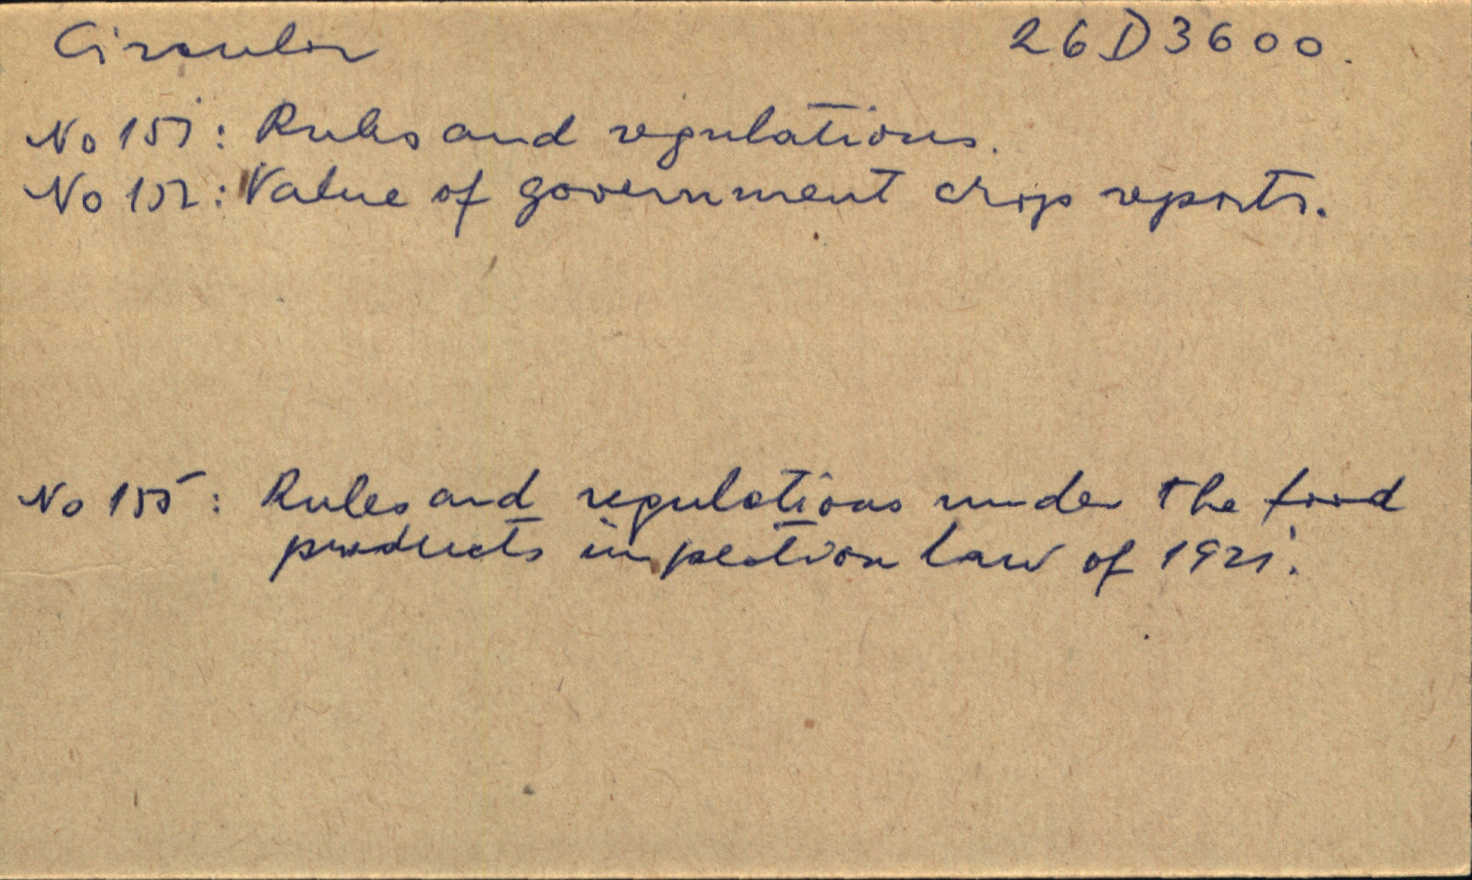 Circular 26D3600.
No 151: Rules and regulations.
No 152: Value of government crop reports.
No 155: Rules and regulations under the food
products inspection law of 1921.